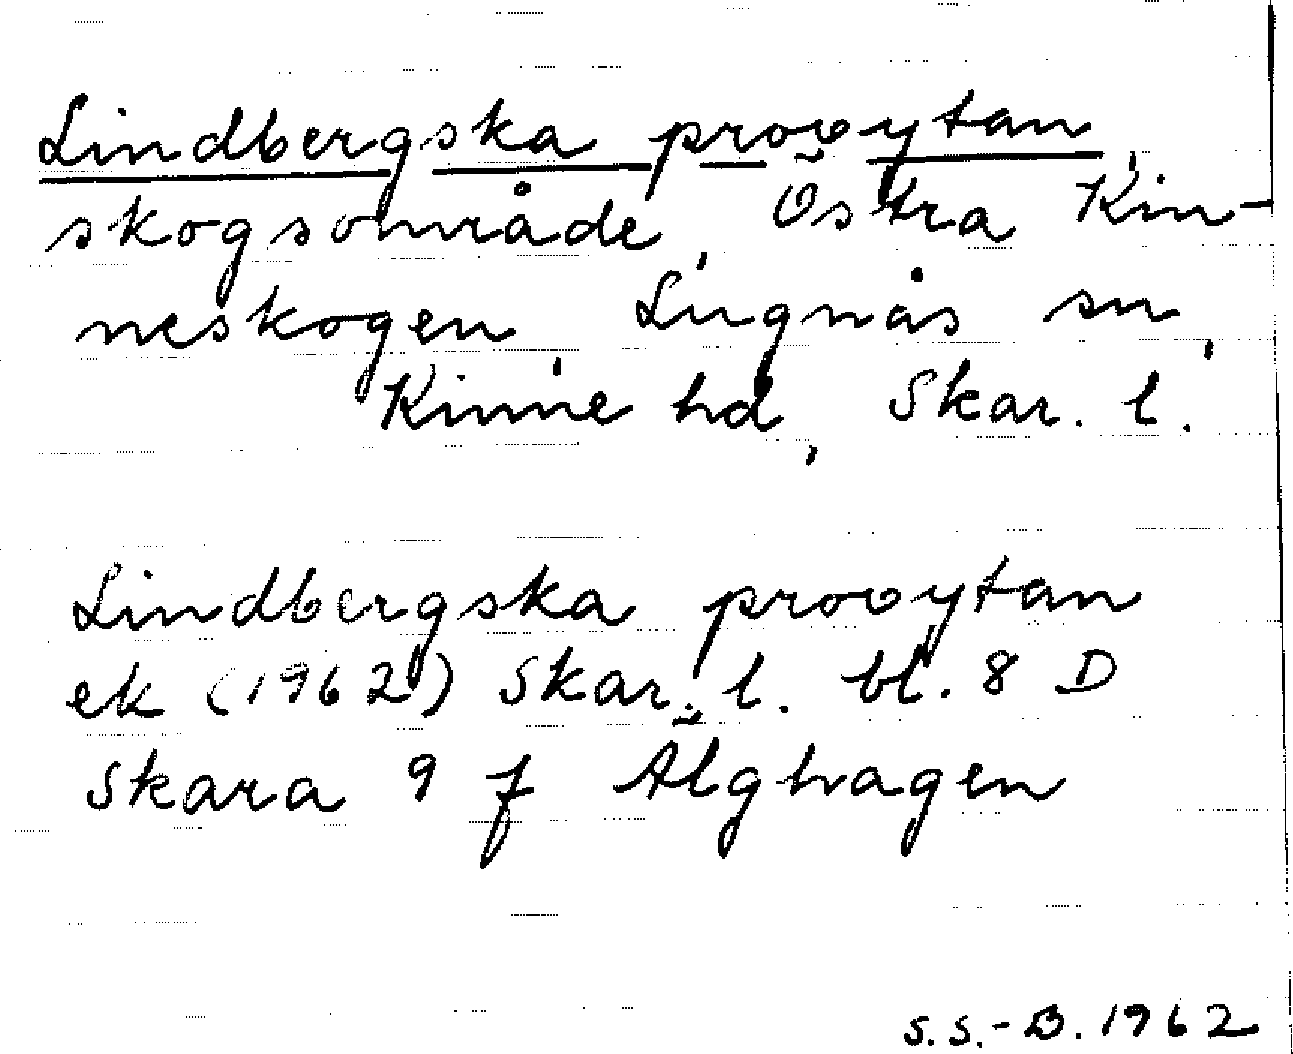 Lindbergska provytan,
skogsområde, Östra Kin-
neskogen, Lugnås sn,
Kinne hd, Skar. l.
Lindbergska provytan
ek (1962) Skar. l. bl. 8 D
Skara 9 f Älghagen
S.S.-B. 1962